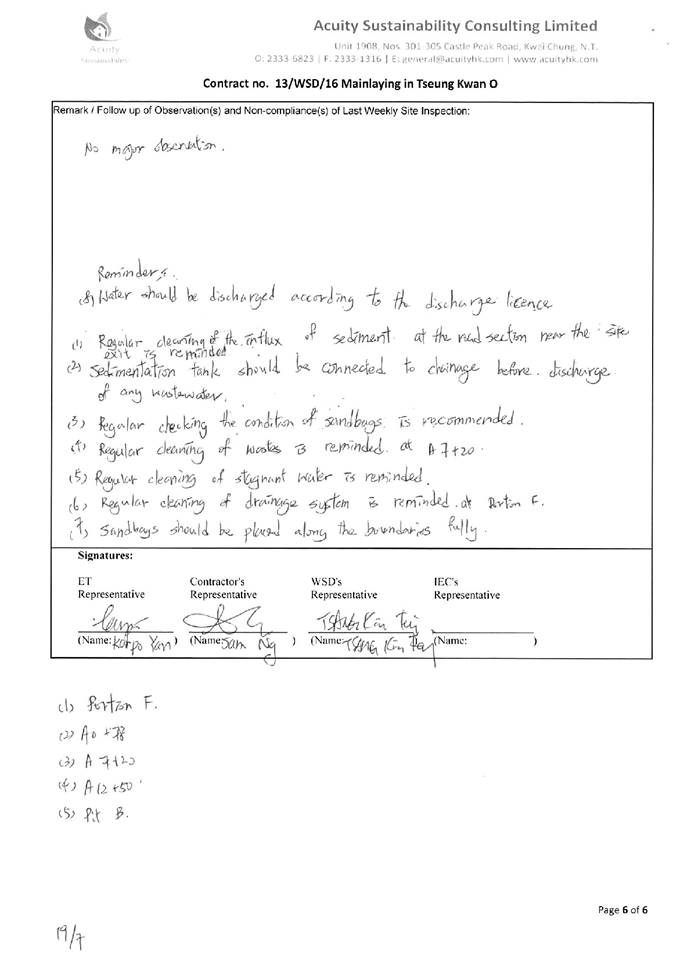 Acuity Sustainability Consulting Limited
Acuity
Sustainability
Unit 1908, Nos. 301-305 Castle Peak Road, Kwai Chung, N.T.
O: 2333-6823 | F: 2333-1316 | E: general@acuityhk.com | www.acuityhk.com
Contract no. 13/WSD/16 Mainlaying in Tseung Kwan O
Remark / Follow up of Observation(s) and Non-compliance(s) of Last Weekly Site Inspection:
No major observation.
Reminders:
(8) Water should be discharged according to the discharge licence
(1) Regular cleaning of the influx of sediment at the road section near the site
exit is reminded
(2) Sedimentation tank should be connected to drainage before discharge
of any wastewater.
(3) Regular checking the condition of sandbags is recommended.
(4) Regular cleaning of wastes is reminded at A7+20.
(5) Regular cleaning of stagnant water is reminded.
(6) Regular cleaning of drainage system is reminded at Portion F.
(7) Sandbags should be placed along the boundaries fully.
Signatures:
ET Contractor's WSD's IEC's
Representative Representative Representative Representative
(Name: Yan) (Name: Sam Ng ) (Name: TSANG Kin (Name: )
(1) Portion F.
(2) A0 +78
(3) A 7+20
(4) A12+50
(5) Pit B.
Page 6 of 6
19/7